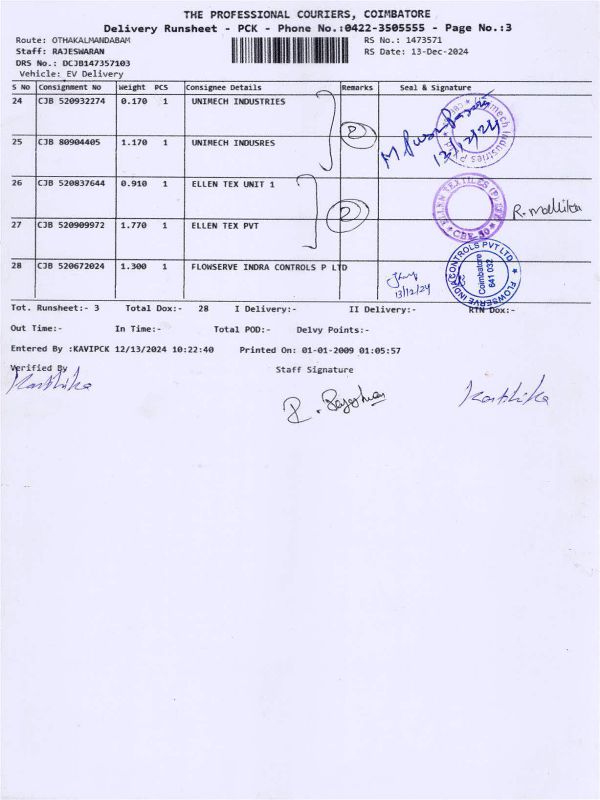 THE PROFESSIONAL COURIERS, COIMBATORE
Delivery Runsheet - PCK - Phone No.:0422-3505555 - Page No.:3
Route: OTHAKALMANDABAM RS No.: 1473571
Staff: RAJESWARAN RS Date: 13-Dec-2024
DRS No.: DCJB147357103
Vehicle: EV Delivery
S No Consignment No Weight PCS Consignee Details Remarks Seal & Signature
24 CJB 520932274 0.170 1 UNIMECH INDUSTRIES
Unimech Industries
13/12/24
25 CJB 80904405 1.170 1 UNIMECH INDUSRES
2
26 CJB 520837644 0.910 1 ELLEN TEX UNIT 1
ELLEN TEXTILES (P)
R. Mallika
2
27 CJB 520909972 1.770 1 ELLEN TEX PVT
28 CJB 520672024 1.300 1 FLOWSERVE INDRA CONTROLS P LTD
FLOWSERVE INDIA CONTROLS PVT LTD
Coimbatore
641 032
13/12/24
Tot. Runsheet:- 3 Total Dox:- 28 I Delivery:- II Delivery:- RTN Dox:-
Out Time:- In Time:- Total POD:- Delvy Points:-
Entered By :KAVIPCK 12/13/2024 10:22:40 Printed On: 01-01-2009 01:05:57
Verified By Staff Signature
Karthika R. Rajeshwaran Karthika